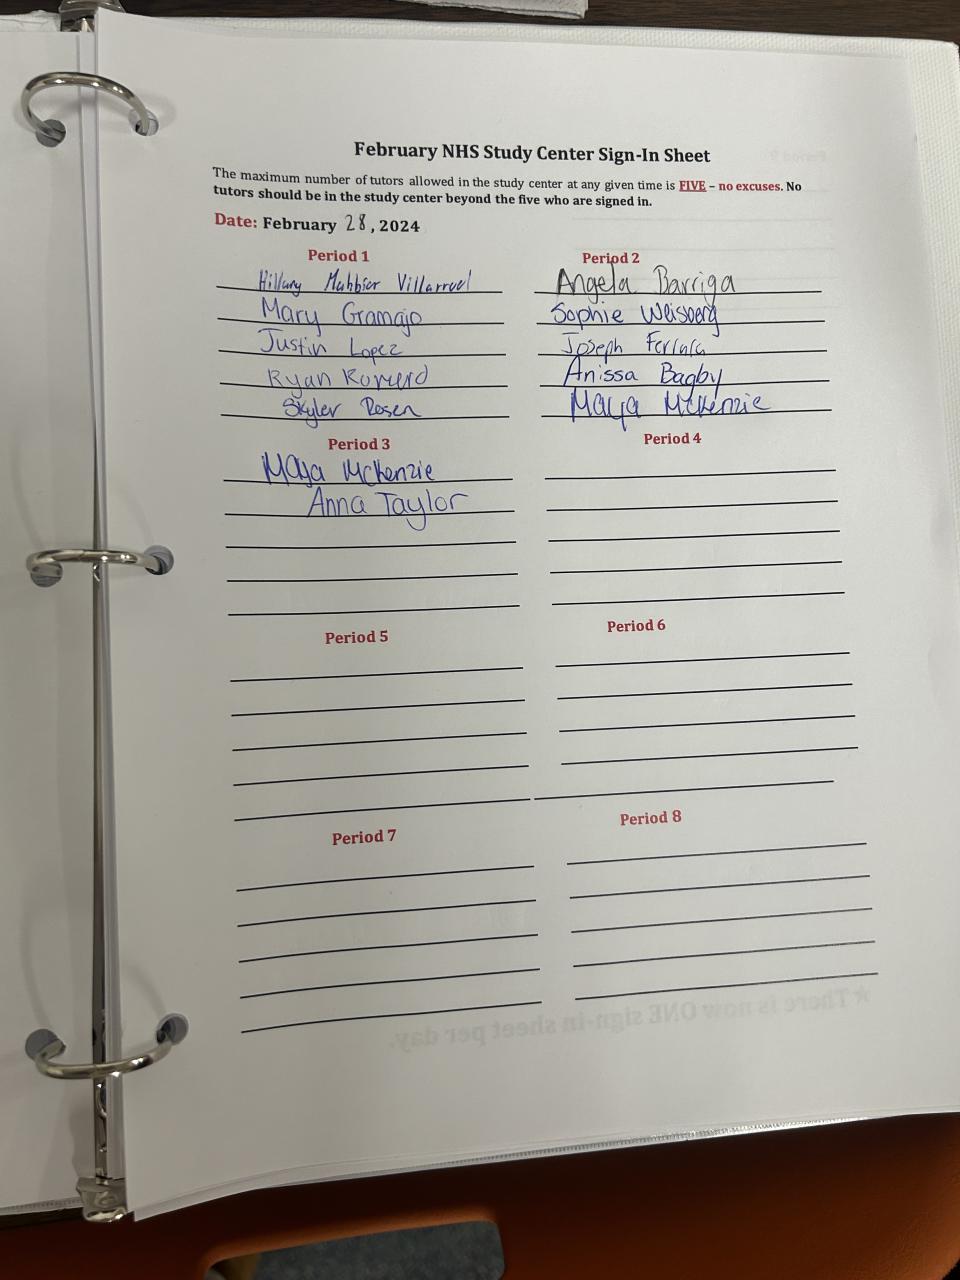 February NHS Study Center Sign-In Sheet
The maximum number of tutors allowed in the study center at any given time is FIVE – no excuses. No
tutors should be in the study center beyond the five who are signed in.
Date: February 28, 2024
Period 1
Hillary Villarroel
Mary Gramajo
Justin Lopez
Ryan Romero
Skyler Rosen
Period 2
Angela Barriga
Sophie Weisberg
Joseph
Anissa Bagby
Maya McKenzie
Period 3
Maya McKenzie
Anna Taylor
Period 4
Period 5
Period 6
Period 7
Period 8
★There is now ONE sign-in sheet per day.